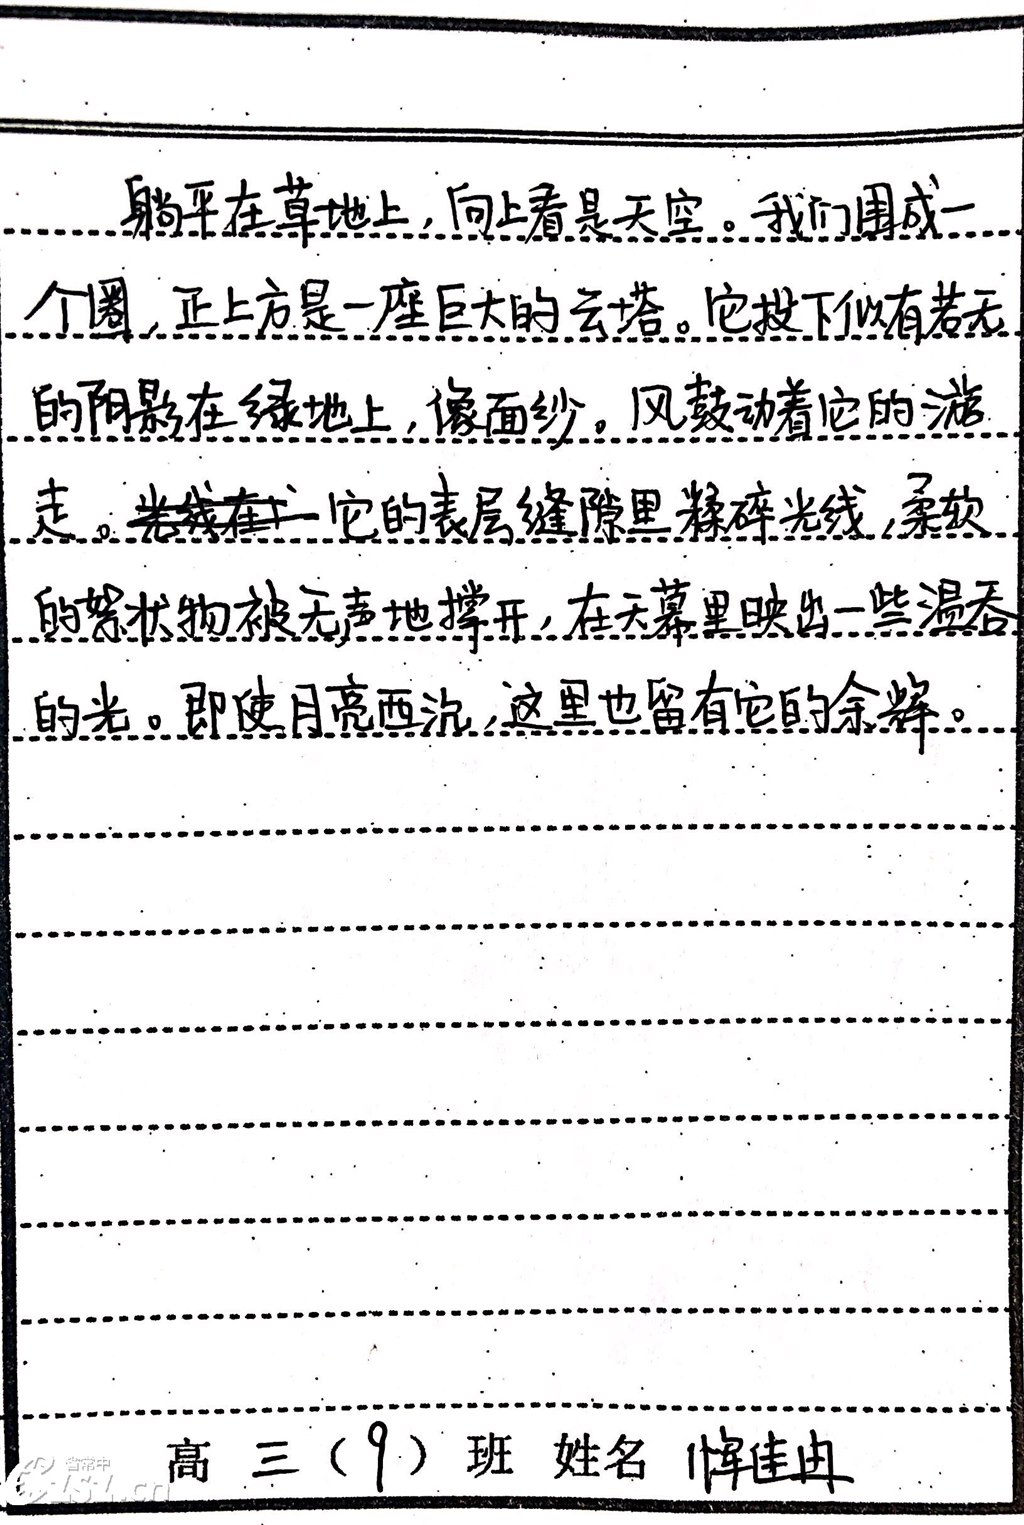 躺平在草地上，向上看是天空。我们围成一
个圈，正上方是一座巨大的云塔。它投下似有若无
的阴影在绿地上，像面纱。风鼓动着它的游
走。它的表层缝隙里揉碎光线，柔软
的絮状物被无声地撑开，在天幕里映出一些温吞
的光。即使月亮西沉，这里也留有它的余辉。
高三（9）班 姓名 恽佳冉
省常中